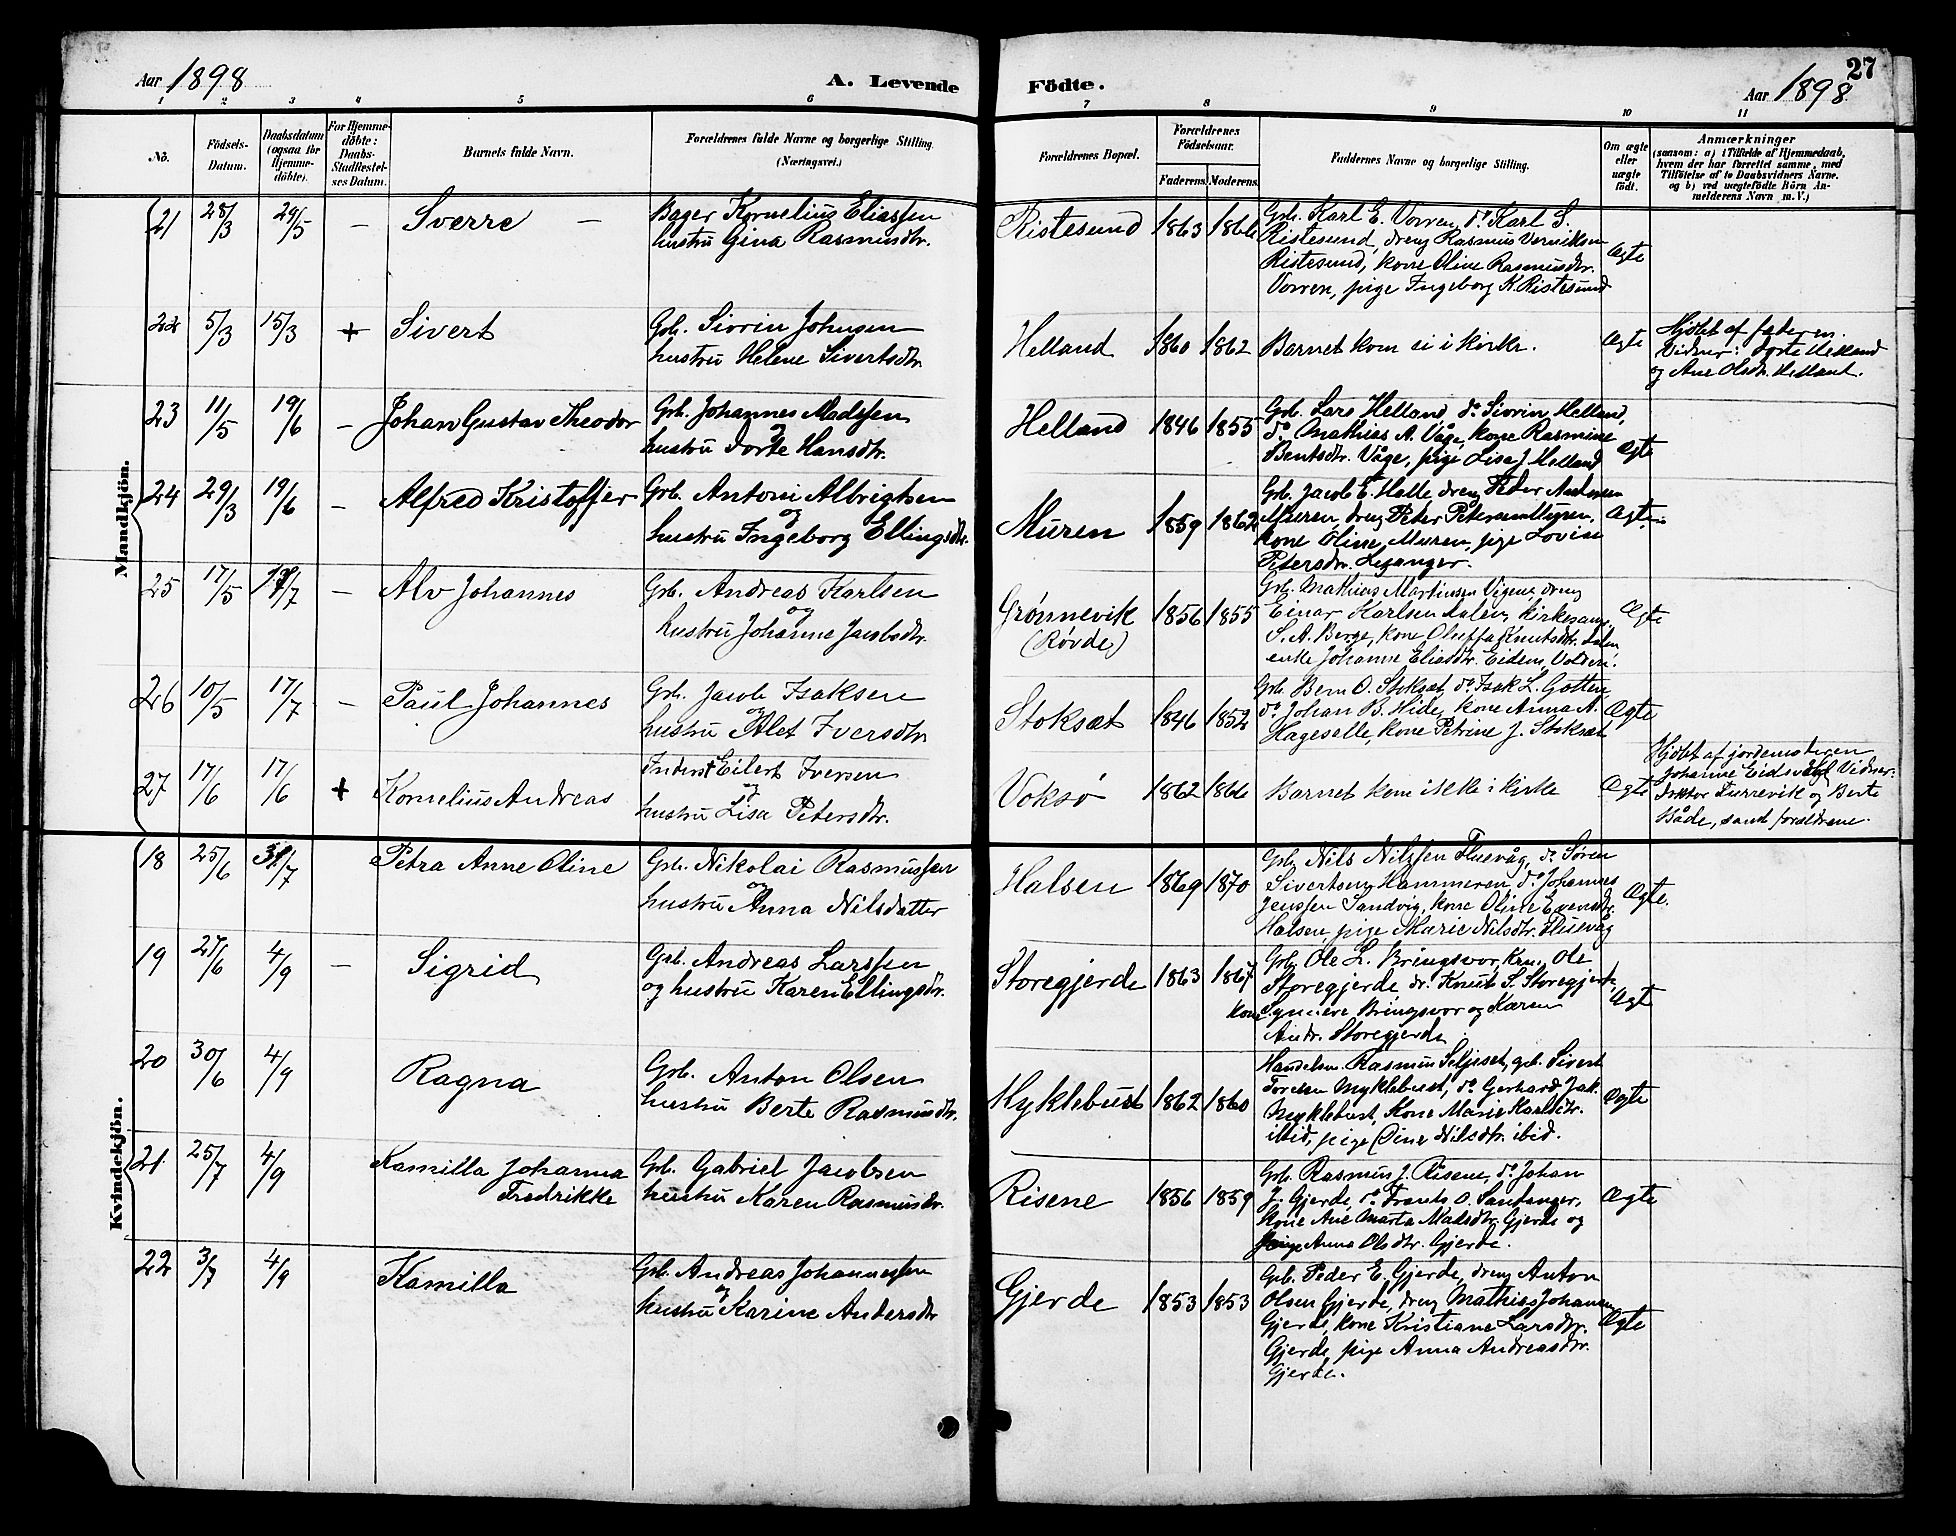 Aar 1898
A. Levende
Födte.
27
Aar 1898
1 2 3 4 5 6 7 8 9 10 11
No.
Födsels-
Datum.
Daabsdatum
(ogsaa for
Hjemme-
döbte).
For Hjemme-
döbte:
Daabs-
Stadfæstel-
ses Datum.
Barnets fulde Navn.
Forældrenes fulde Navne og borgerlige Stilling.
(Næringsvei.)
Forældrenes Bopæl.
Forældrenes
Födselsaar.
Faderens. Moderens.
Faddernes Navne og borgerlige Stilling.
Om ægte
eller
uægte
födt.
Anmærkninger
(saasom: a) i Tilfælde af Hjemmedaab,
hvem der har forrettet samme, med
Tilföielse af to Daabsvidners Navne.
og b) ved uægtefödte Börn An-
melderens Navn m. V.)
Mandkjön.
21 28/3 29/5 – Sverre –
Bager Kornelius Eliassen
hustru Gina Rasmusdtr.
Ristesund 1863 1866
Grb. Karl E. Vorren, do Karl S.
Ristesund, dreng Rasmus
Ristesund, kone Oline Rasmusdtr.
Vorren, pige Ingeborg K. Ristesund
Ægte
22 5/3 15/3 + Sivert
Grb. Sivrin Johnsen
hustru Helene Sivertsdtr.
Helland 1860 1862 Barnet kom ei i kirke. Ægte
Hjdbt af faderen.
Vidner: Dorte Helland
og Ane Olsdtr. Helland.
23 11/5 19/6 – Johan Gustav Theodor
Grb. Johannes Madssen
og
hustru Dorte Hansdtr.
Helland 1846 1855
Grb. Lars Helland, do Sivrin Helland,
do Mathias A. Våge, kone Rasmine
Bentsdtr. Våge, pige Lisa J Helland
Ægte
24 29/3 19/6 – Alfred Kristoffer
Grb. Antoni Albrigtsen
og
hustru Ingeborg Ellingsdtr.
Muren 1859 1862
Grb. Jacob E. Halle, dreng Peder Andersen
Muren, dreng Peter Petersen
kone Oline Muren, pige Lovise
Petersdtr. Leganger.
Ægte
25 17/5 17/7 – Alv Johannes
Grb. Andreas Karlsen
og
hustru Johanne Jacobsdtr.
Grønnevik
(Røvde)
1856 1855
Grb. Mathias Martinsen dreng
Einar Karlsen Dalen, kirkesang.
S. A. Berge, kone Oluffa Knutsdtr. Dalen
enke Johanne Eliasdtr. Eidem, Volden.
Ægte
26 10/5 17/7 – Paul Johannes
Grb. Jacob Isaksen
og
hustru Alet Iversdtr.
Stoksæt 1846 1852
Grb. Bern O. Stoksæt, do Isak L. Gotten
do Johan B. Hide, kone Anna A.
Hageselle, kone Petrine J. Stoksæt
Ægte
27 17/6 17/6 + Kornelius Andreas
Inderst Eilert Iversen
og
hustru Lisa Petersdtr.
Voksø 1862 1866 Barnet kom ikke i kirke Ægte
Hjdbt af jordemoderen
Johanne Vidner:
Doktor Furrevik og Berte
Både, samt forældrene.
Kvindekjön.
18 25/6 31/7 Petra Anne Oline
Grb. Nikolai Rasmussen
og
hustru Anna Nilsdatter
Halsen 1869 1870
Grb. Nils Nilssen Fluevåg, do Søren
Sivertsen Hammeren, do Johannes
Jenssen Sandvig, kone Oline Evensdtr.
Halsen, pige Marie Nilsdtr. Fluevåg
Ægte.
19 27/6 4/9 – Sigrid
Grb. Andreas Larssen
og hustru Karen Ellingsdtr.
Storegjerde 1863 1867
Grb. Ole L. Bringsvor, Ole
Storegjerde do Knut S. Storegjerde,
kone Synneve Bringsvor og Karen
Andr. Storegjerde
Ægte
20 30/6 4/9 Ragna
Grb. Anton Olsen
hustru Berte Rasmusdtr.
Myklebust 1862 1860
Handelsm. Rasmus Seljeset, grb. Sivert
Toresen Myklebust, do Gerhard Jak.
Myklebust, Kone Marie Karlsdtr.
ibid, pige Oine Nilsdtr. ibid.
Ægte
21 25/7 4/9 Kamilla Johanna
Fredrikke
Grb. Gabriel Jacobsen
hustru Karen Rasmusdtr.
Risene 1856 1859
Grb. Rasmus J. Risene, do Johan
J. Gjerde, do Frants O. Sandanger,
Kone Ane Marta Madsdtr. Gjerde og
pige Anna Olsdtr. Gjerde.
Ægte
22 3/7 4/9 Kamilla
Grb. Andreas Johannessen
og
hustru Karine Andersdtr
Gjerde 1853 1853
Grb. Peder E. Gjerde, dreng Anton
Olsen Gjerde, dreng Mathias Johansen
Gjerde, kone Kristiane Larsdtr.
Gjerde, pige Anna Andreasdtr.
Gjerde.
Ægte